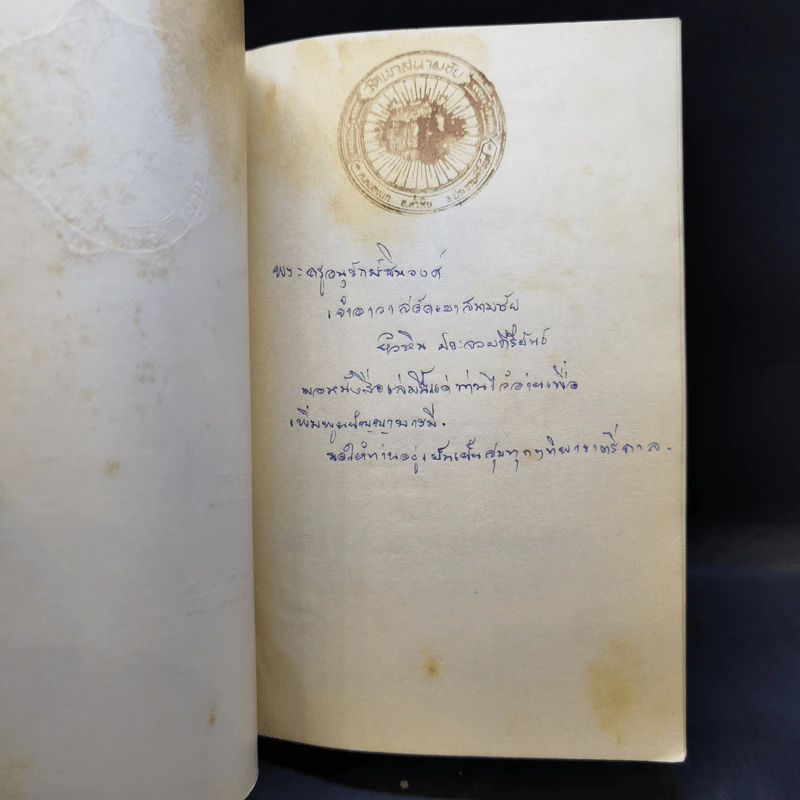 วัดเขาสนามชัย
พระครูอนุรักษ์ชินวงศ์
เจ้าอาวาสวัดเขาสนามชัย
หัวหิน ประจวบคีรีขันธ์
มอบหนังสือเล่มนี้แด่ท่านไว้อ่านเพื่อ
เพิ่มพูนปัญญาบารมี.
ขอให้ท่านอยู่เย็นเป็นสุขทุกๆทิพาราตรีกาล.